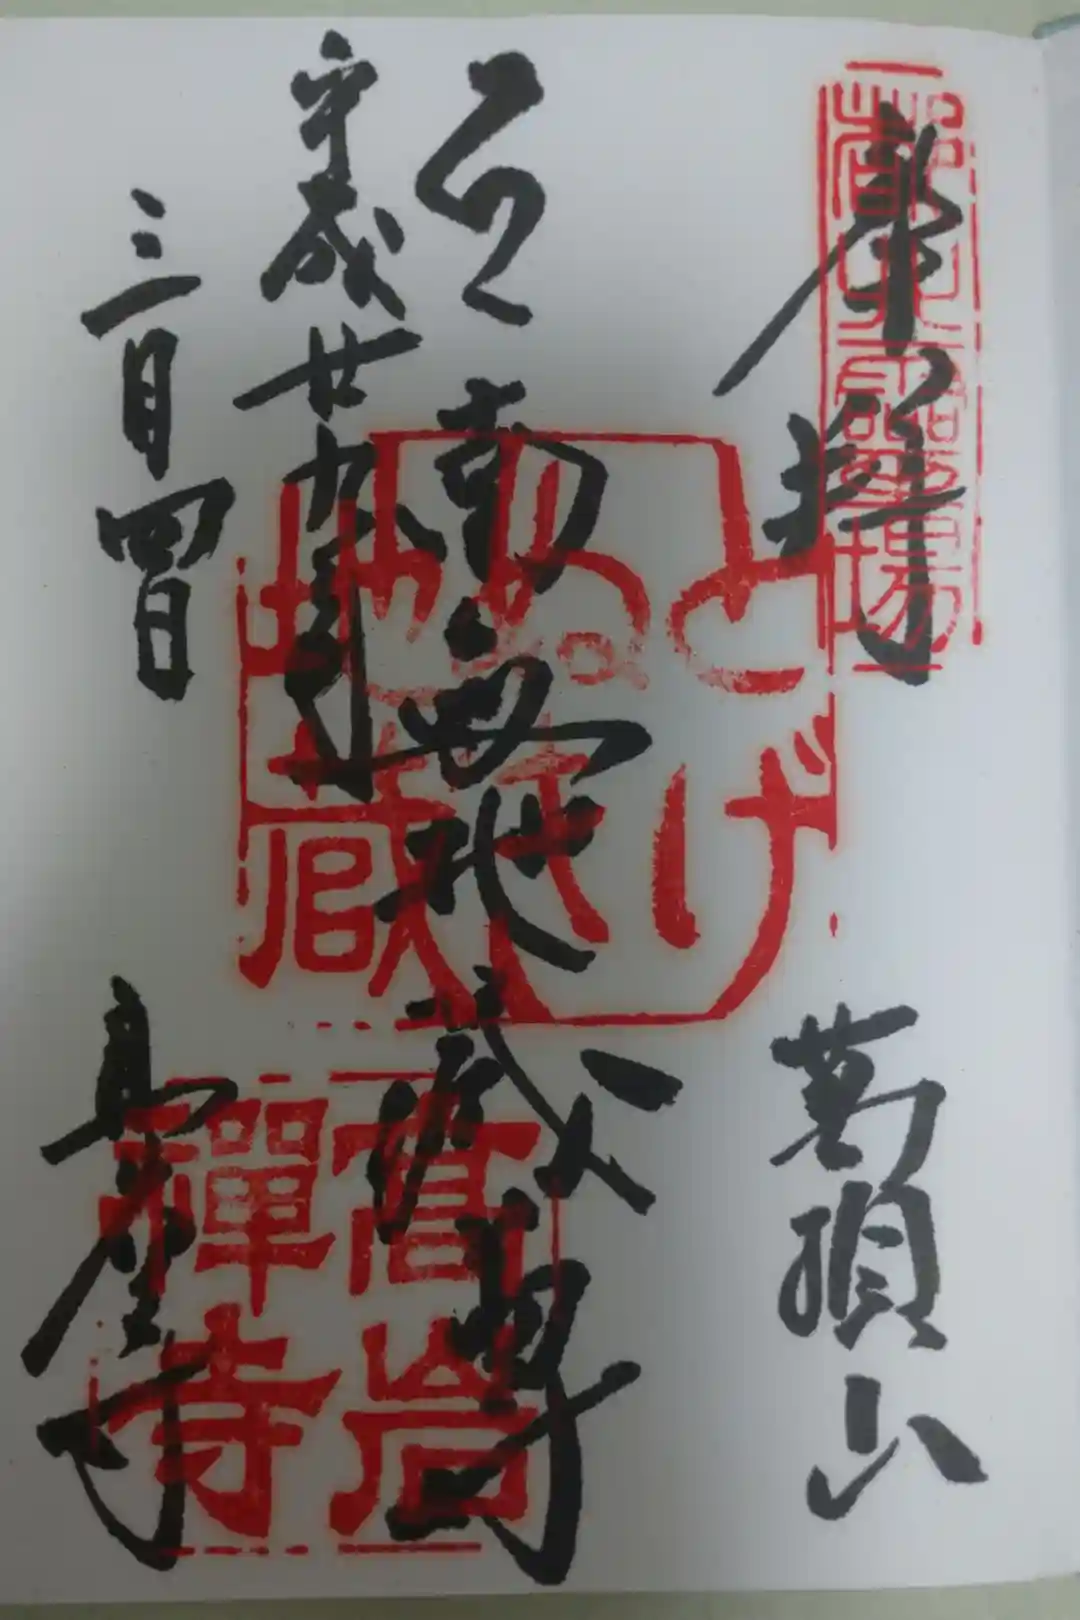 奉拝
萬頂山
南無地蔵 尊
平成廿九年
三月四日
高岩寺
霊場
とげ
ぬき
地蔵
高岩
禅寺